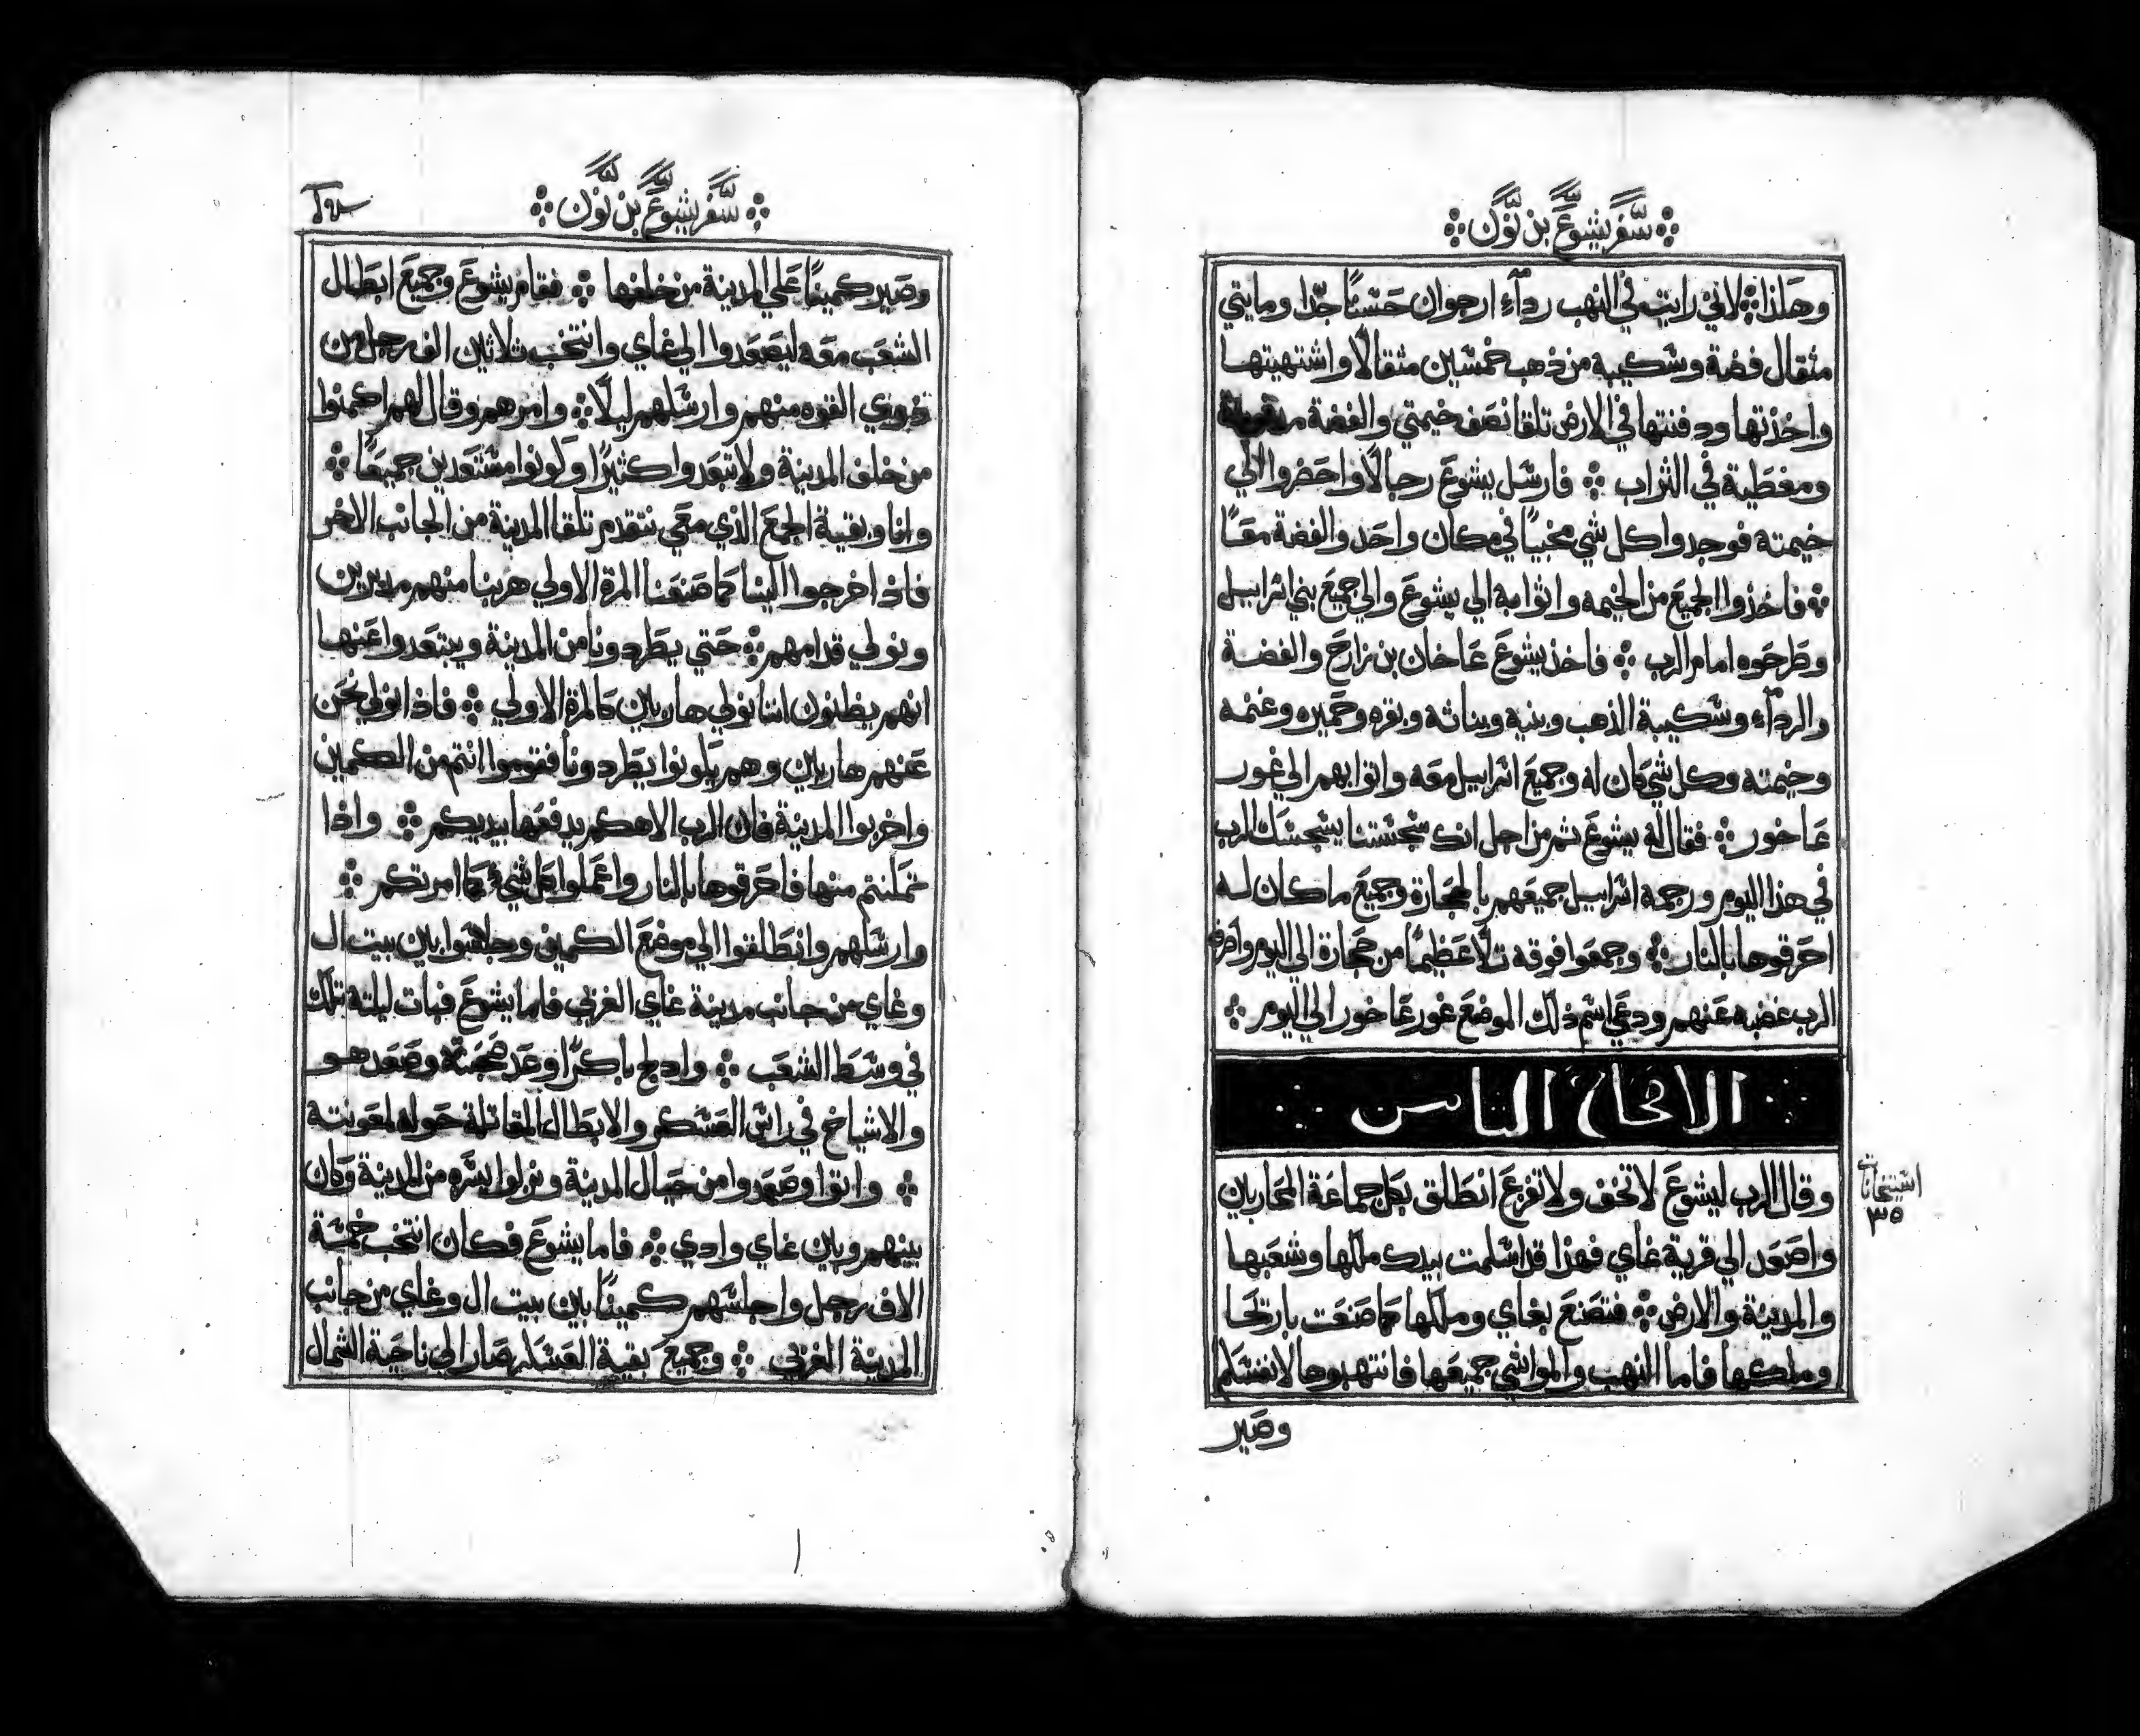 سفر يشوع بن نون
وهاذا لاني رايت في النهب رداء ارجوان حسنًا جدا ومايتي
مثقال فضة وسكيبه من ذهب خمسين مثقالًا واشتهيتها
واخذتها ودفنتها في الارض تلقا نصف خيمتي والفضة
ومغطية في التراب فارسل يشوع رجالًا واحضروا الي
خيمته فوجدوا كل شي مخبيًا في مكان واحد والفضة معًا
فاخذوا الجميع من الخيمه واتوا به الي يشوع والي جميع بني اسراييل
وطرحوه امام الرب فاخذ يشوع عاخان بن زارح والفضة
والرداء وسكيبة الذهب وبنيه وبناته وبقره وحميره وغنمه
وخيمته وكل شي كان له وجميع اسراييل معه واتوا بهم الي غور
عاخور فقال له يشوع ثم من اجل انك سجستنا يسجسك الرب
في هذا اليوم ورجمه اسراييل جميعهم بالحجارة وجميع ما كان له
احرقوها بالنار وجمعوا فوقه تلًا عظيمًا من حجارة الي اليوم واصرف
الرب غضبه عنهم ودعي اسم ذلك الموضع غور عاخور الي اليوم
الاصحاح الثامن
وقال الرب ليشوع لا تخف ولا تفزع انطلق بكل جماعة المحاربين
واصعد الي قرية غاي فهذا قد اسلمت بيدك ملكها وشعبها
والمدينة والارض فتصنع بغاي وملكها كما صنعت باريحا
وملكها فاما النهب والمواشي جميعها فانتهبوها لانفسكم
استيخانات
٣٥
وصير
سفر يشوع بن نون
وصير كمينًا علي المدينة من خلفها فقام يشوع وجميع ابطال
الشعب معه ليصعدوا الي غاي وانتخب ثلاثين الف رجل من
ذوي القوه منهم وارسلهم ليلًا وامرهم وقال لهم اكمنوا
من خلف المدينة ولا تبعدوا كثيرًا وكونوا مستعدين جميعًا
وانا وبقية الجمع الذي معي نتقدم تلقا المدينة من الجانب الاخر
فاذا خرجوا الينا كما صنعنا المرة الاولي هربنا منهم مدبرين
ونولي قدامهم حتي يطردونا من المدينة ويبتعدوا عنها
انهم يظنون اننا نولي هاربين كالمرة الاولي فاذا نولي نحن
عنهم هاربين وهم يكونوا يطردونا فقوموا انتم من الكمين
واخربوا المدينة فان الرب الاهكم يدفعها بيديكم واذا
تمكنتم منها فاحرقوها بالنار واعملوا كل شيء كما امرتكم
وارسلهم وانطلقوا الي موضع الكمين وجلسوا بين بيت ال
وغاي من جانب مدينة غاي الغربي فاما يشوع فبات ليلته تلك
في وسط الشعب وادلج باكرًا وعد صحبته وصعد هو
والاشياخ في راس العسكر والابطال المقاتلة حوله لمعونته
واتوا وصعدوا من حيال المدينة ونزلوا يسره من المدينة وكان
بينهم وبين غاي وادي فاما يشوع فكان انتخب خمسة
الاف رجل واجلسهم كمينًا بين بيت ال وغاي من جانب
المدينة الغربي وجميع بقية العسكر صار الي ناحية الشمال